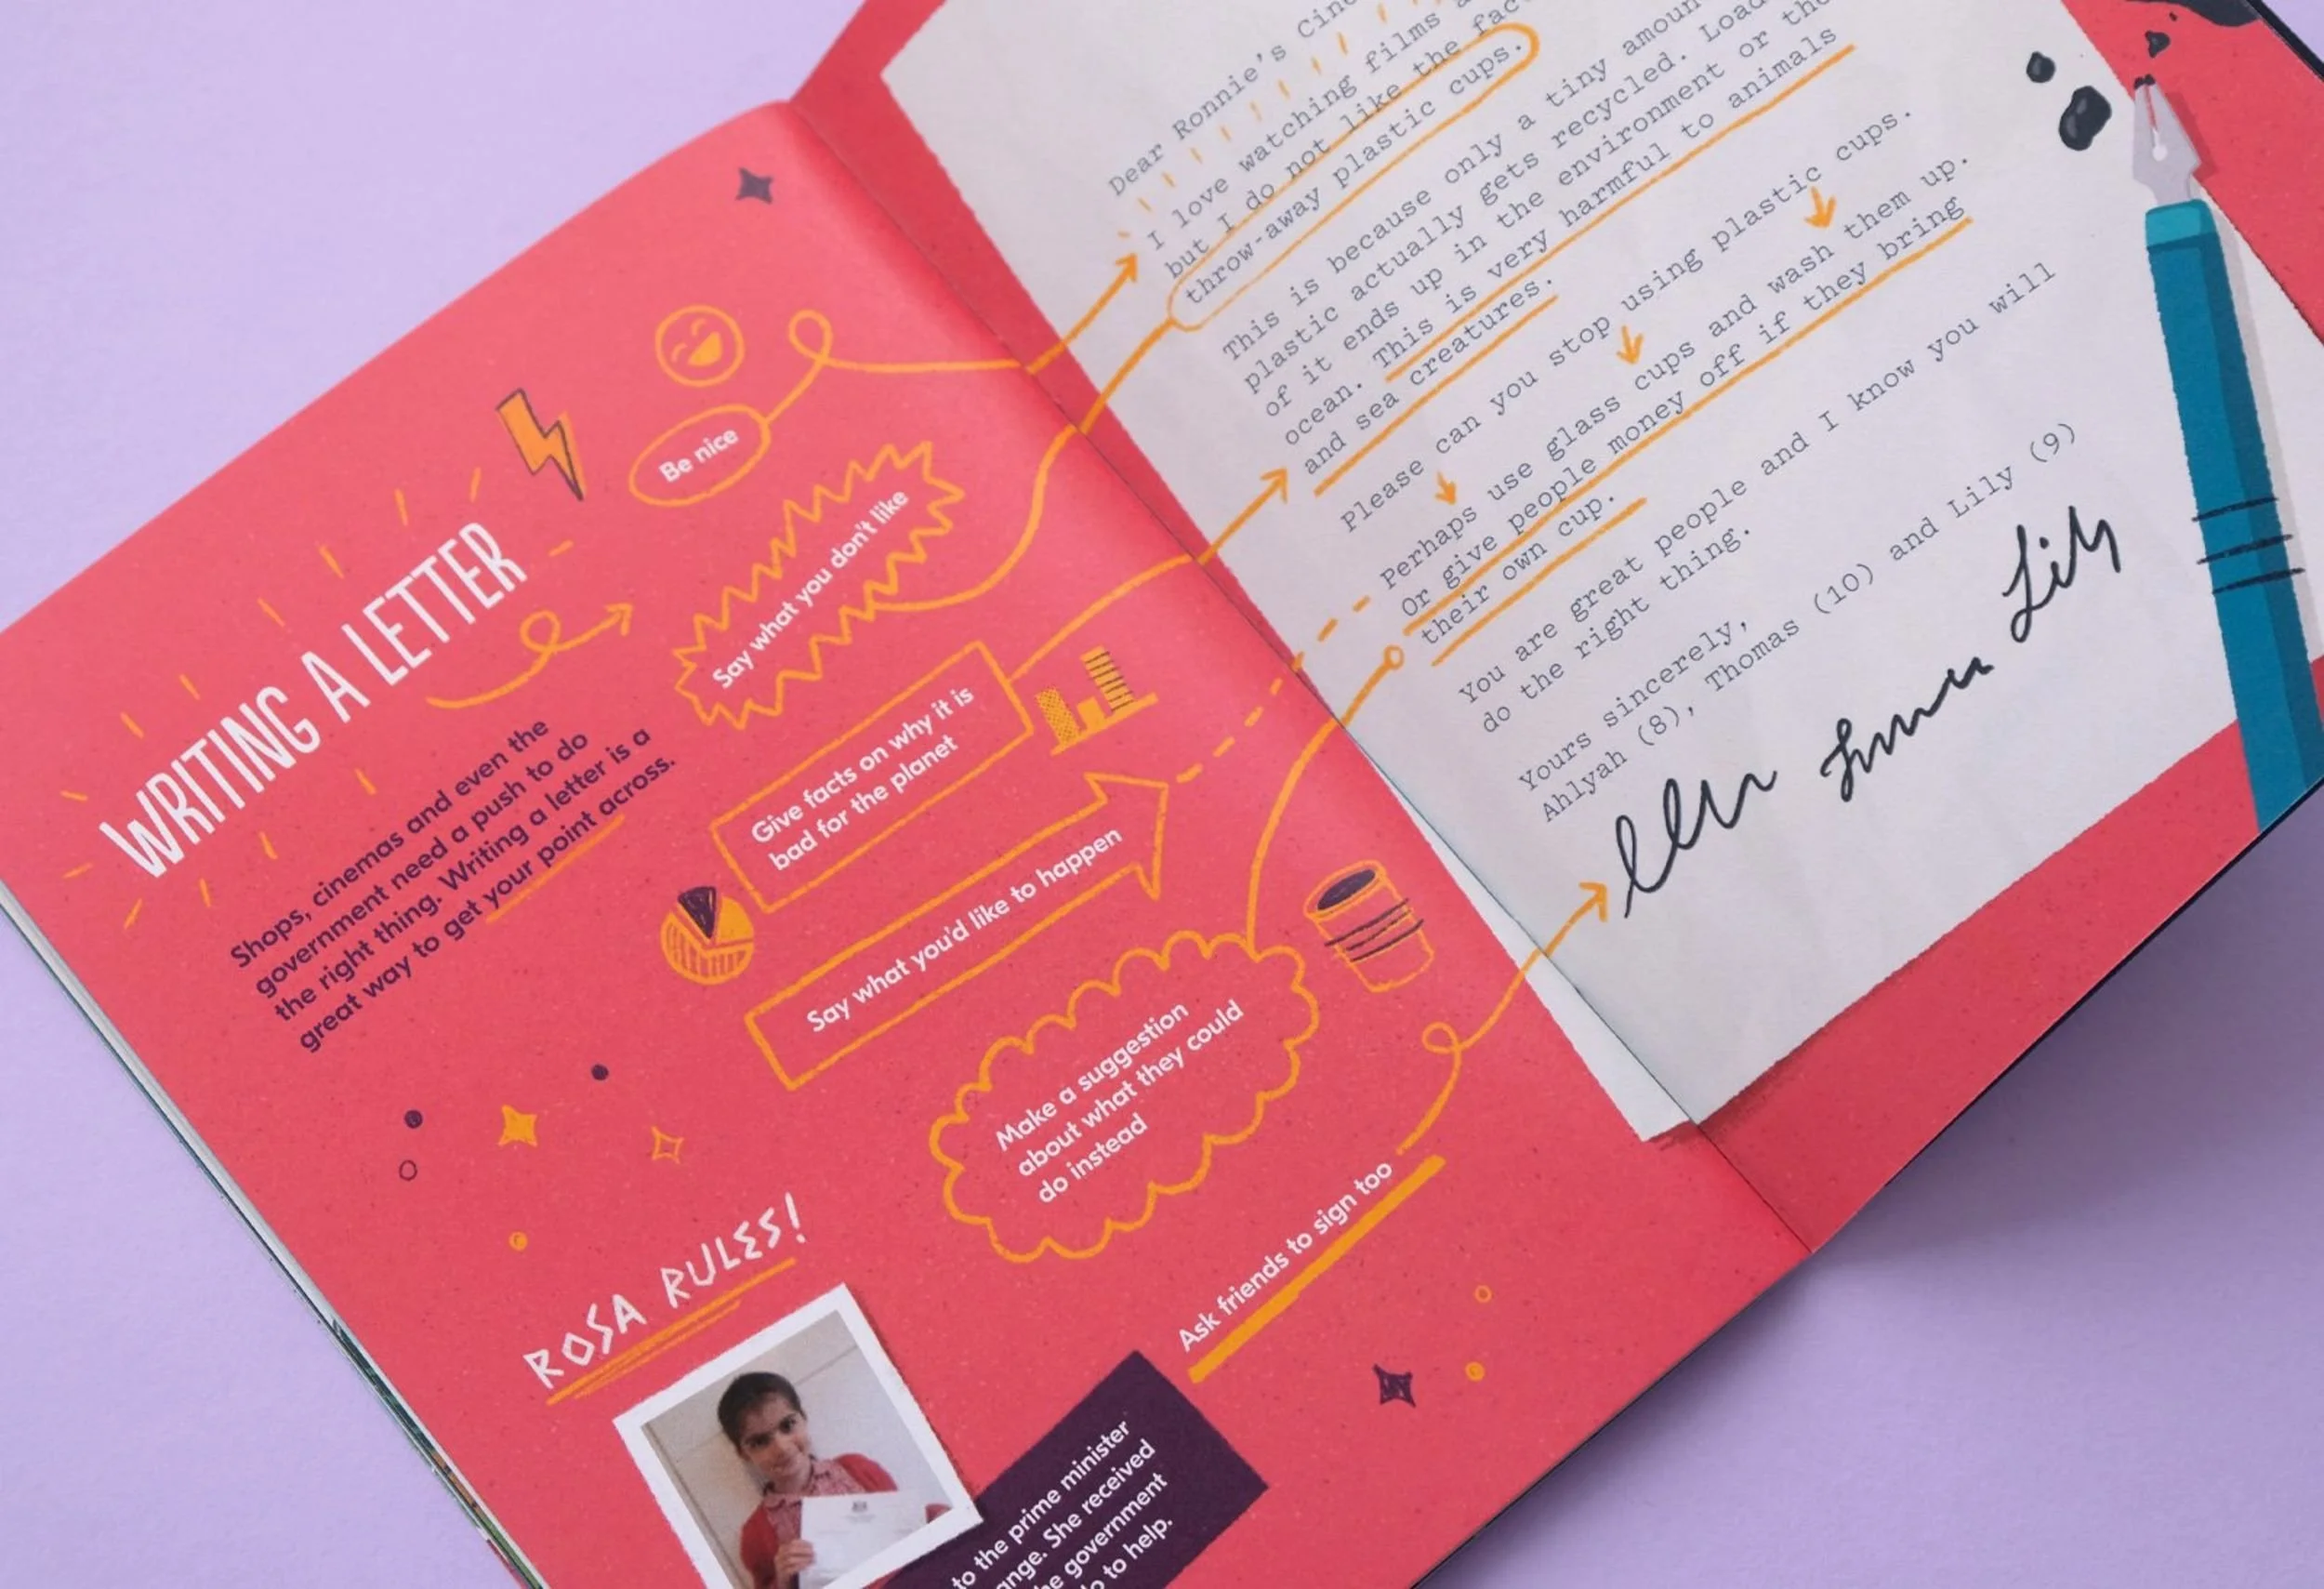 WRITING A LETTER
Shops, cinemas and even the
government need a push to do
the right thing. Writing a letter is a
great way to get your point across.
Be nice
Say what you don't like
Give facts on why it is
bad for the planet
Say what you'd like to happen
Make a suggestion
about what they could
do instead
Ask friends to sign too
ROSA RULES!
to the prime minister
She received
government
to help.
Dear Ronnie's
I love watching films
but I do not like the
throw-away plastic cups.
This is because only a tiny
plastic actually gets recycled.
of it ends up in the environment or
ocean. This is very harmful to animals
and sea creatures.
Please can you stop using plastic cups.
Perhaps use glass cups and wash them up.
Or give people money off if they bring
their own cup.
You are great people and I know you will
do the right thing.
Yours sincerely,
Ahlyah (8), Thomas (10) and Lily (9)
Lily